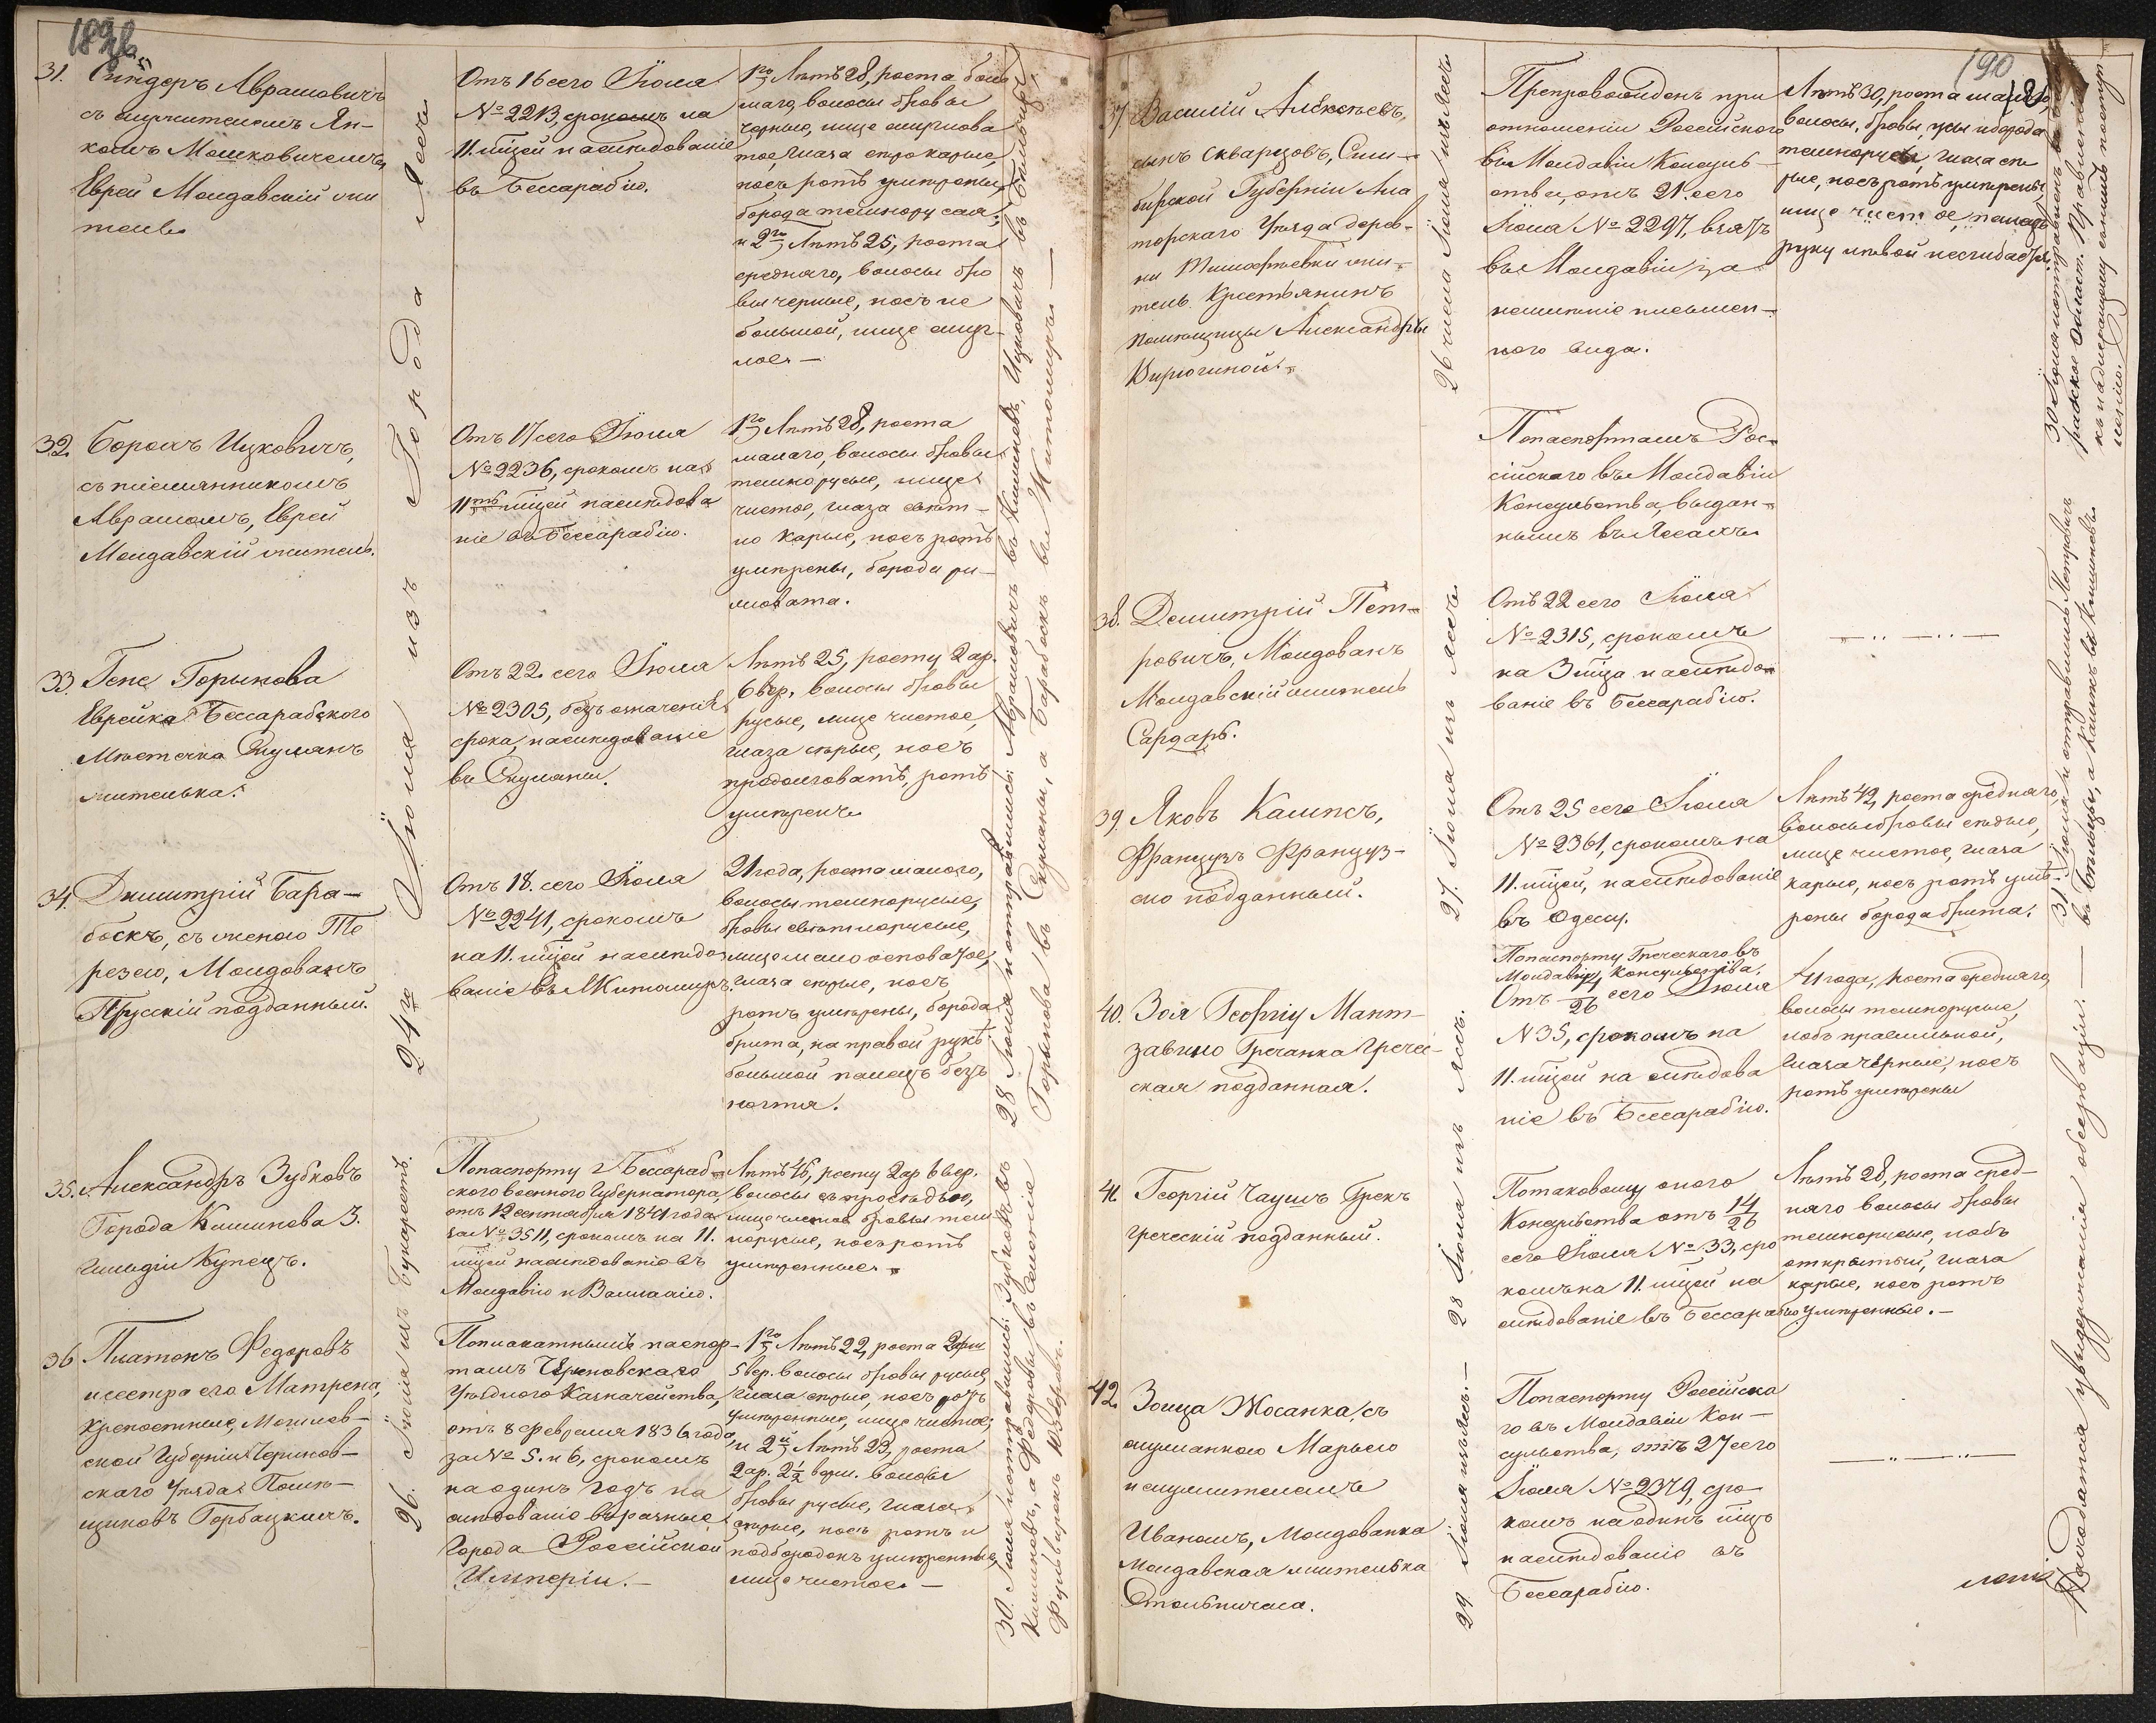 189 об.
31. Сандеръ Аврамовичъ
съ служителемъ Ян-
комъ Мошковичемъ,
Еврей Молдавскій жи
тель.
Отъ 16 сего Іюля
№ 2213, срокомъ на
11. мцей наслѣдованіе
въ Бессарабію.
1го Лѣтъ 28, роста боль
волосы бровы
черные, лице смуглова
тое, глаза карые,
носъ ротъ умѣрены,
борода темнорусая;
и 2го Лѣтъ 25, роста
средняго, волосы бро
вы черные, носъ не
большой, лице смуг-
лое. —
32. Боромъ Ицковичъ,
съ племянникомъ
Аврамомъ, Еврей
Молдавскій житель.
Отъ 17 сего Іюля
№ 2236, срокомъ на
11ть мцей наслѣдова
ніе въ Бессарабію.
1го Лѣтъ 28, роста
малаго, волосы бровы
темнорусые, лице
чистое, глаза свѣт-
ло карые, носъ ротъ
умѣрены, борода ры-
жовата.
33. Гене Горынова
Еврейка Бессарабского
Мѣстечка Скулянъ
жителька.
Отъ 22 сего Іюля
№ 2305, безъ означенія
срока, наслѣдованіе
въ Скуляны.
Лѣтъ 25, росту 2 ар.
6 вер. волосы бровы
русые, лице чистое,
глаза сѣрые, носъ
продолговатъ, ротъ
умѣренъ
34. Дмитрій Бара-
боскъ, съ женою Те
резею, Молдованъ
Прусскій подданный.
Отъ 18. сего Іюля
№ 2241, срокомъ
на 11. мцей наслѣдо
ваніе въ Житомиръ.
21 года, роста малого,
волосы темнорусые,
бровы свѣтлорусые,
лице мало осповатое,
глаза сѣрые, носъ
ротъ умѣрены, борода
брита, на правой рукѣ
большой палецъ безъ
ногтя.
35. Александръ Зубковъ
Города Кишинева 3.
гильдіи Купецъ.
Попаспорту Г. Бессараб-
ского военного Губернатора,
отъ 12 сентября 1841 года
за № 3511, срокомъ на 11.
мцей наслѣдованіе въ
Молдавію и Валлахію.
Лѣтъ 46, росту 2 ар 6 вер.
волосы съ просѣдью,
лице чистое бровы тем
норусые, носъ ротъ
умѣренные. —
36 Платонъ Федоровъ
и сестра его Матрена,
крепостные, Могилев-
ской Губерніи Чериков-
скаго Уѣзда Помѣ-
щиковъ Горбацкихъ.
Поплакатнымъ паспор-
тамъ Чериковскаго
Уѣздного Казначейства,
отъ 8 февраля 1836 года,
за № 5. и 6, срокомъ
на одинъ годъ на
слѣдованіе въ разные
города Россійской
Имперіи. —
1го Лѣтъ 22, роста 2 арш
5 вер. волосы бровы русые,
глаза сѣрые, носъ ротъ
умѣренные, лице чистое,
и 2й Лѣтъ 23, роста
2 ар. 2 1/2 верш. волосы
бровы русые, глаза
сѣрые, носъ ротъ и
подбородокъ умѣренные,
лице чистое. —
24го Іюля изъ Города Яссъ
26. Іюля изъ Букарестъ.
28 Іюля и отправились Аврамовичъ въ Кишиневъ, Ицковичъ въ Бѣльцы,
Горынова въ Скуляны, а Барабоскъ въ Житомиръ —
30. Іюля и отправились: Зубковъ въ
Кишиневъ, а Федоровы въ Селеніе
190
37 Василій Алексѣевъ,
сынъ Скварцовъ, Сим-
бирской Губерніи Ала
торскаго Уѣзда дерев-
ни Тимофѣевки жи-
тель Крестьянинъ
помѣщицы Александры
Кирюгиной. —
Препровожденъ при
отношеніи Россійского
въ Молдавіи Консуль-
ства, отъ 21. сего
Іюля № 2297, взятъ
въ Молдавіи за
неимѣніе письмен-
ного вида.
Лѣтъ 30, роста малаго,
волосы, бровы, усы и борода
темнорусы, глаза сѣ
рые, носъ ротъ умѣрены
лице чистое, палецъ
руки лѣвой несгибается.
Попаспортамъ Рос-
сійскаго въ Молдавіи
Консульства, выдан-
нымъ въ Яссахъ
38. Демитрій Пет-
ровичъ, Молдованъ
Молдавскій житель
Сардарь.
Отъ 22 сего Іюля
№ 2315, срокомъ
на 3 мца наслѣдо
ваніе въ Бессарабію.
— .. — .. —
39. Яковъ Калисъ,
Французъ Француз-
ско подданный.
Отъ 25 сего Іюля
№ 2361, срокомъ на
11. мцей, наслѣдованіе
въ Одессу.
Лѣтъ 42, роста средняго,
волосы бровы сѣдые,
лице чистое, глаза
карые, носъ ротъ умѣ-
рены борода брита.
Попаспорту Греческаго въ
Молдавіи Консульства.
40. Зоя Георгіу Мант-
завино Гречанка Гречес-
ская подданная.
Отъ 14/26 сего Іюля
N 35, срокомъ на
11. мцей на слѣдова
ніе въ Бессарабію.
41 года, роста средняго,
волосы темнорусые,
лобъ правильной,
глаза черные, носъ
ротъ умѣрены
41. Георгій Чаушъ Грекъ
греческій подданный.
Потаковому оного
Консульства отъ 14/26
сего Іюля № 33, сро
комъ на 11. мцей на
слѣдованіе въ Бессарабію
Лѣтъ 28, роста сред-
няго волосы бровы
темнорусые, лобъ
открытый, глаза
карые, носъ ротъ
умѣренные. —
42. Зоица Жосанка, съ
служанкою Марьею
и служителемъ
Иваномъ, Молдованка
Молдавская жителька
Стольничаса.
Попаспорту Россійска
го въ Молдавіи Кон-
сульства, отъ 27 сего
Іюля № 2379, сро-
комъ на одинъ мцъ
наслѣдованіе въ
Бессарабію.
— .. — .. —
26 числа Іюля изъ Яссъ
27. Іюля изъ Яссъ
28 Іюля изъ Яссъ.
29 Іюля изъ Яссъ. —
30 Іюля отправленъ въ
рабское Област. Правленіе
31. Іюля и отправились: Петровичъ
въ Бѣльцы, а Калисъ въ Кишиневъ.
Находятся увыдержанія обсерваціи. —